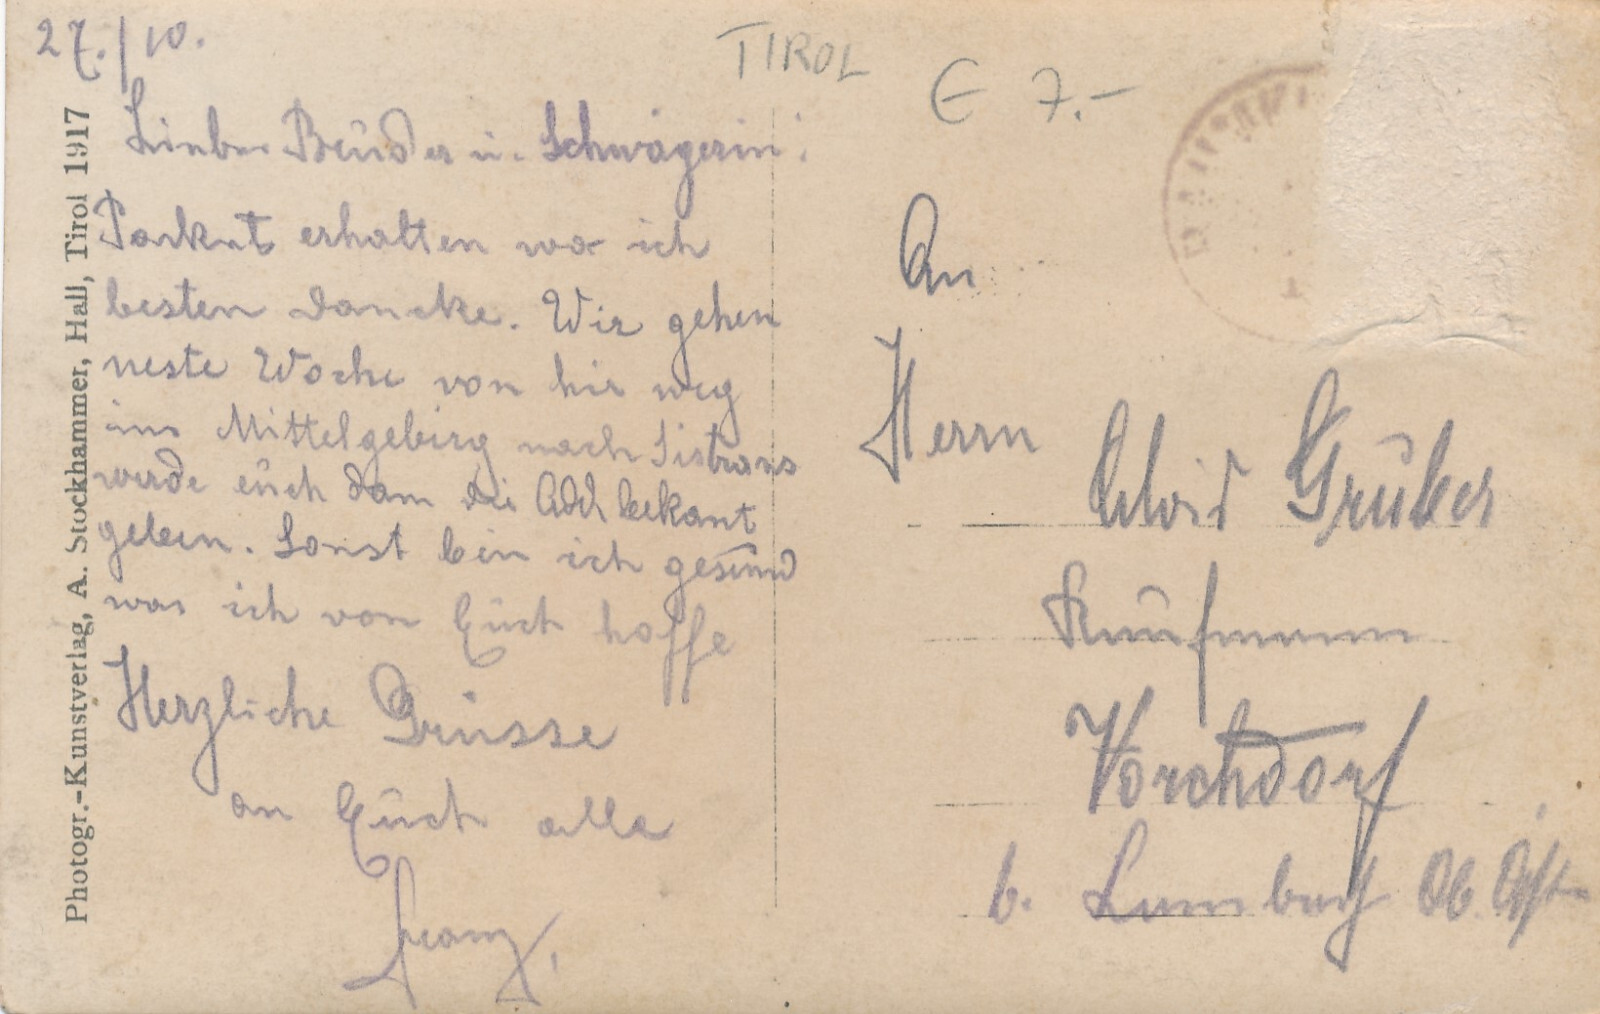 27./10.
TIROL
€ 7.-
Lieber Bruder u. Schwägerin!
Packet erhalten wo ich
besten dancke. Wir gehen
neste Woche von hir weg
ins Mittelgebirg nach Sistrans
werde euch dann die Adr bekant
geben. Sonst bin ich gesund
was ich von Euch hoffe
Herzliche Grüsse
an Euch alle
Franz.
An
Herrn
Alois Gruber
Kaufmann
Vorchdorf
b. Lambach Ob. Östr
Photogr.-Kunstverlag, A. Stockhammer, Hall, Tirol 1917